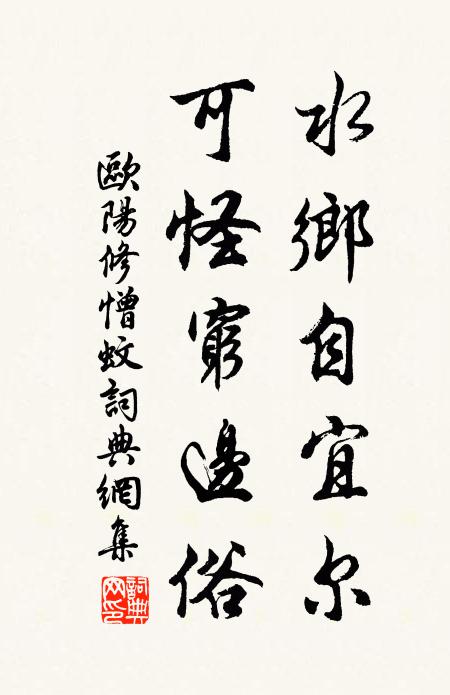 水鄉自宜尔
可怪窮邊俗
歐陽修憎蚊詞典網集
詞典
网印